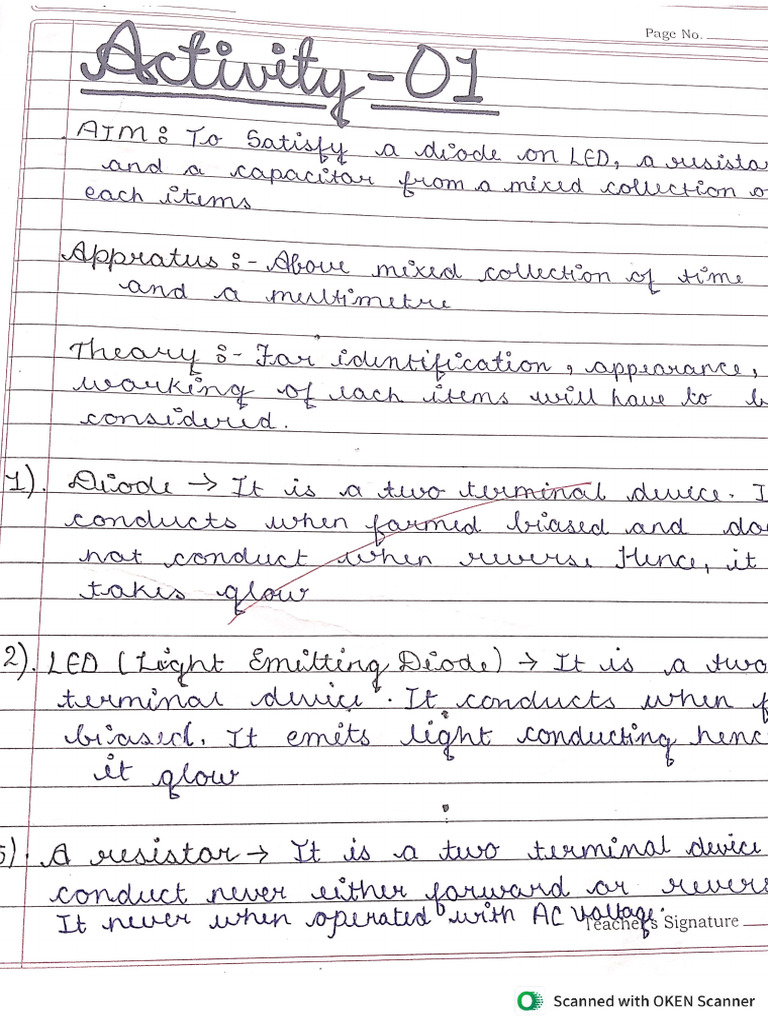 Page No.
Activity-01
AIM: To Satisfy a diode on LED, a resista
and a capacitor from a mixed collection o
each items
Appratus :- Above mixed collection of time
and a multimetre
Theory :- For identification, appearance,
working of each items will have to b
considered.
1). Diode → It is a two terminal device. I
conducts when formed biased and do
not conduct when reverse. Hence, it
takes glow
2). LED (Light Emitting Diode) → It is a two
terminal device. It conducts when f
biased. It emits light conducting henc
it glow
3). A resistor → It is a two terminal device
conduct never either forward or revers
It never when operated with AC voltage.
Teacher's Signature
Scanned with OKEN Scanner